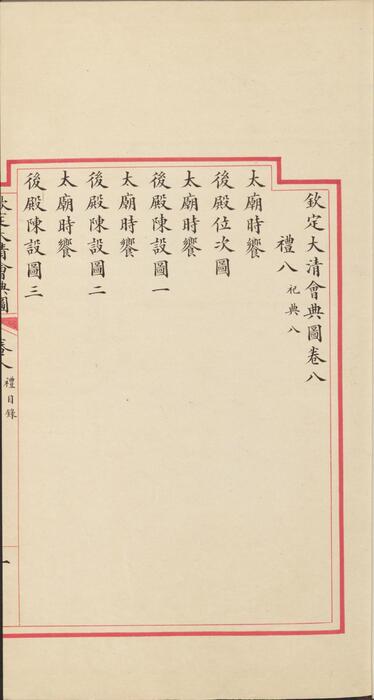 欽定大清會典圖卷八
禮八 祀典八
太廟時饗
後殿位次圖
太廟時饗
後殿陳設圖一
太廟時饗
後殿陳設圖二
太廟時饗
後殿陳設圖三
欽定大清會典圖 卷八 禮目錄 一